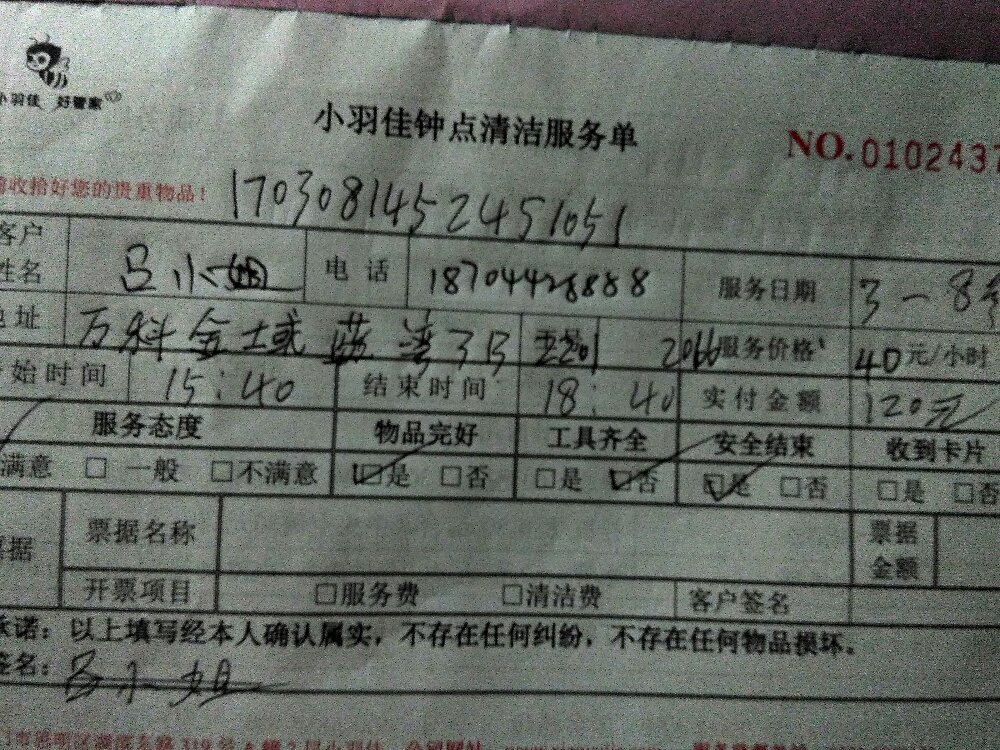 小羽佳 好管家
小羽佳钟点清洁服务单
NO. 0102437
请收拾好您的贵重物品!
170308145245 1051
客户姓名 吕小姐 电话 18704428888 服务日期 3-8
地址 万科金域蓝湾 服务价格 40元/小时
开始时间 15:40 结束时间 18:40 实付金额 120元
服务态度 物品完好 工具齐全 安全结束 收到卡片
满意 □ 一般 □不满意 □是 □否 □是 □否 □是 □否 □是 □否
票据 票据名称 票据金额
开票项目 □服务费 □清洁费 客户签名
承诺: 以上填写经本人确认属实,不存在任何纠纷,不存在任何物品损坏。
签名: 吕小姐